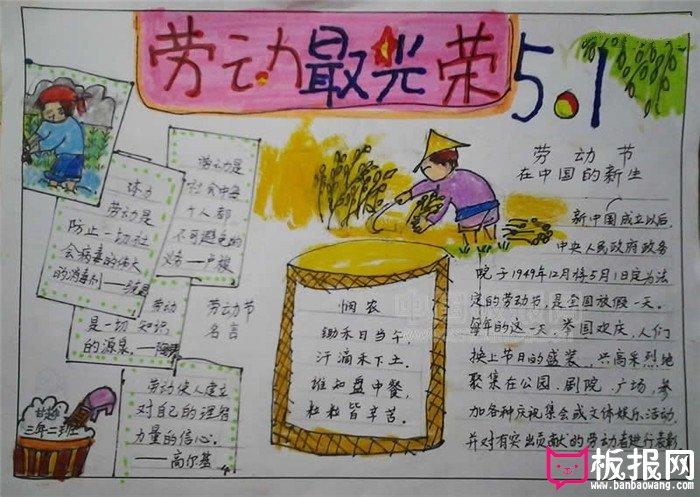 劳动最光荣
5.1
体力
劳动是
防止一切社
会病毒的伟大
的消毒剂
劳动是
社会中每
个人都
不可避免的
义务—卢梭
劳动
是一切知识
的源泉。
劳动节
名言
劳动使人建立
对自己的理智
力量的信心。
——高尔基
三年二班
悯农
锄禾日当午,
汗滴禾下土。
谁知盘中餐,
粒粒皆辛苦。
劳动节
在中国的新生
新中国成立以后,
中央人民政府政务
院于1949年12月将5月1日定为法
定的劳动节,是全国放假一天。
每年的这一天,举国欢庆,人们
换上节日的盛装,兴高采烈地
聚集在公园、剧院、广场,参
加各种庆祝集会或文体娱乐活动,
并对有突出贡献的劳动者进行表彰
板报网
www.banbaowang.com